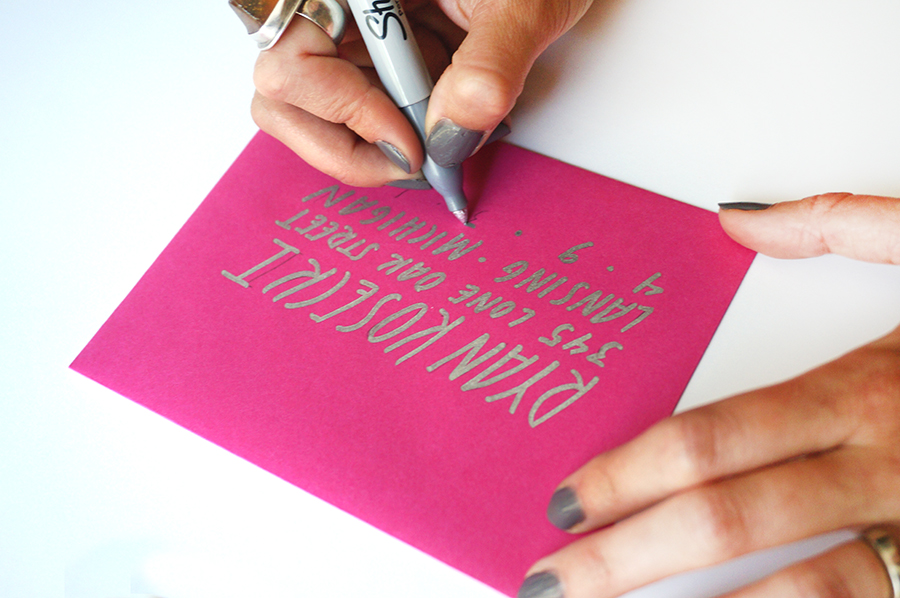 RYAN KOSECKI
345 LONE OAK STREET
LANSING . MICHIGAN
4 . 9 .